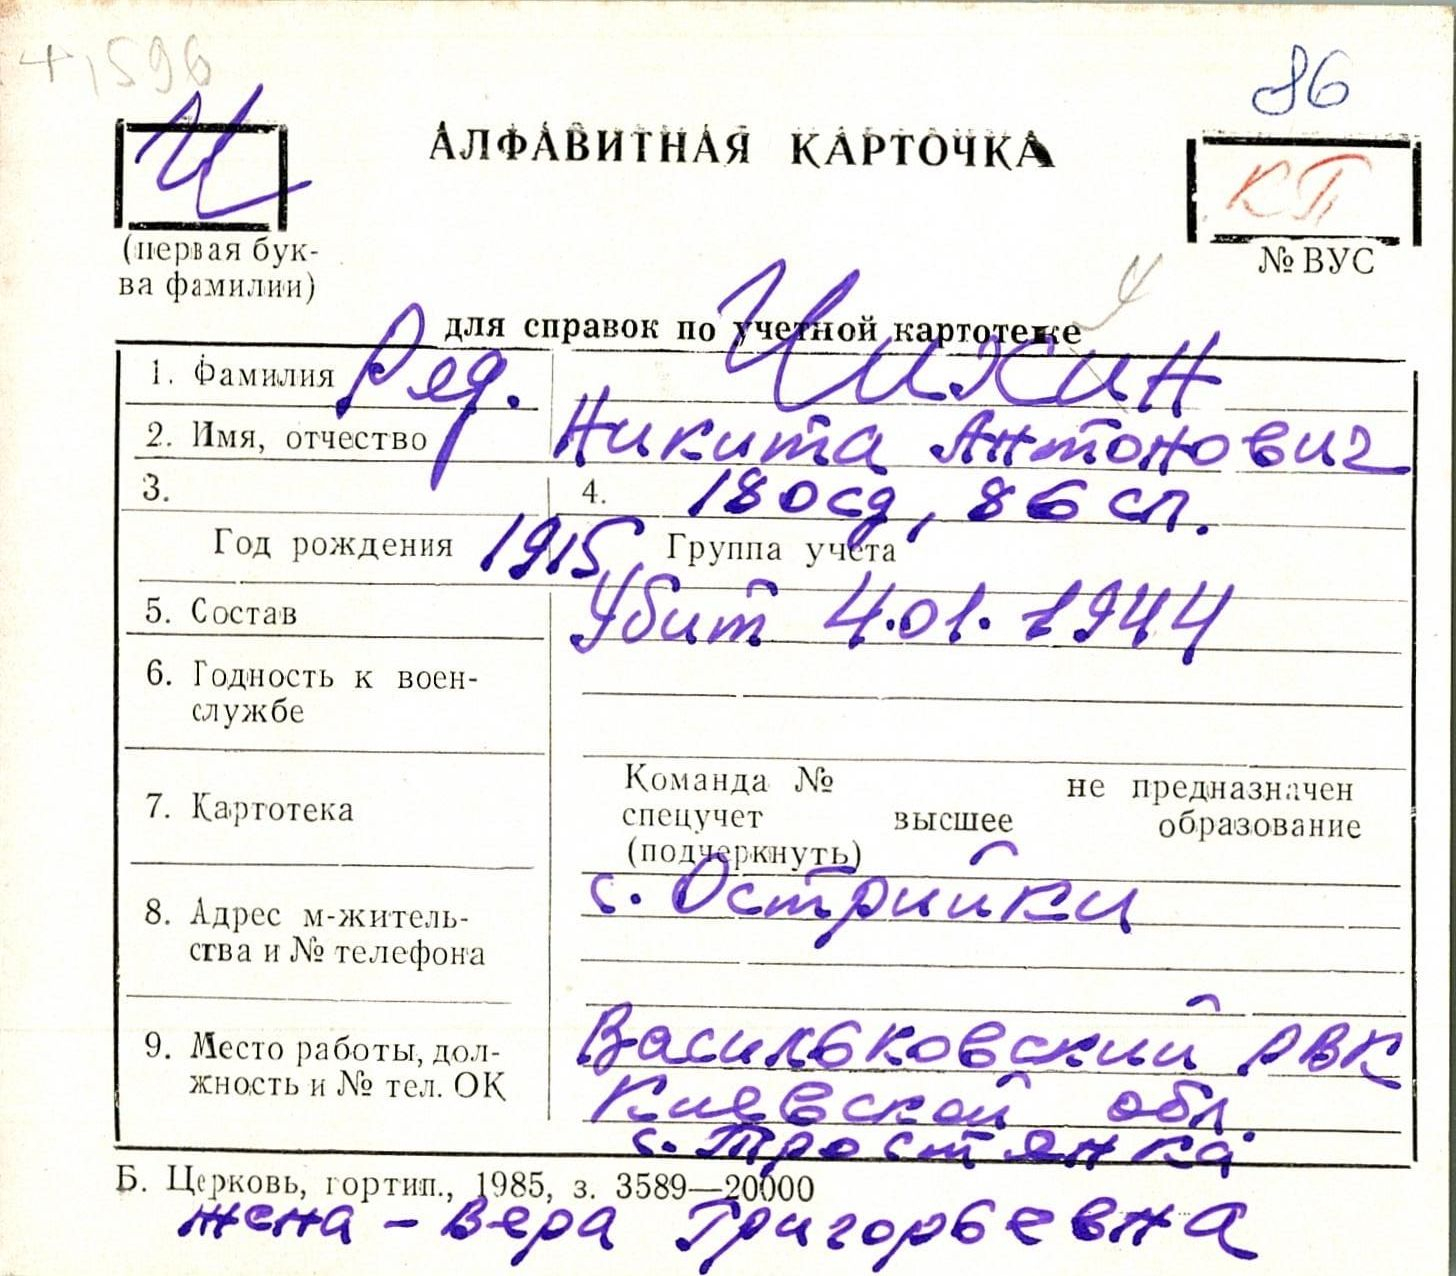 +1596
86
Ч
АЛФАВИТНАЯ КАРТОЧКА
КП
(первая бук-
ва фамилии)
№ ВУС
для справок по учетной картотеке
1. Фамилия Ряд. Чикин
2. Имя, отчество Никита Антонович
3. 4. 180 сд, 86 сп.
Год рождения 1915 Группа учета
5. Состав Убит 4.01.1944
6. Годность к воен-
службе
Команда № не предназначен
7. Картотека спецучет высшее образование
(подчеркнуть)
8. Адрес м-житель- с. Острийки
ства и № телефона
9. Место работы, дол- Васильковский РВК
жность и № тел. ОК Киевской обл.
с. Тростянка
Б. Церковь, гортип., 1985, з. 3589—20000
жена - Вера Григорьевна